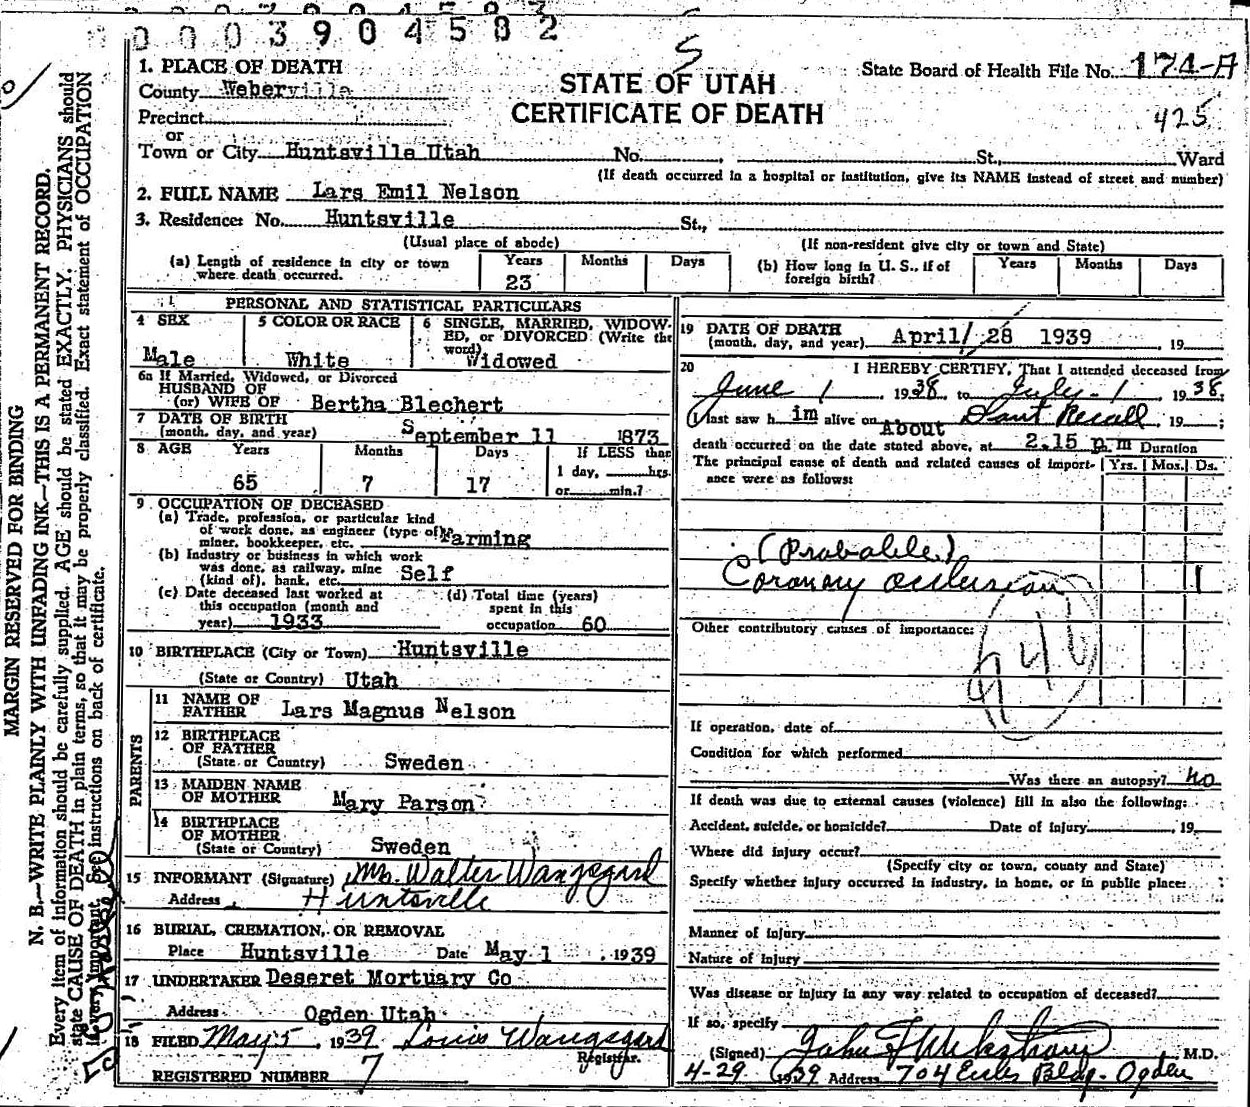 0003904582
1. PLACE OF DEATH
County Weberville
Precinct
or
Town or City Huntsville Utah No. , St., Ward
(If death occurred in a hospital or institution, give its NAME instead of street and number)
STATE OF UTAH
CERTIFICATE OF DEATH
State Board of Health File No. 174-A
425
2. FULL NAME Lars Emil Nelson
3. Residence: No. Huntsville St.,
(Usual place of abode) (If non-resident give city or town and State)
(a) Length of residence in city or town where death occurred. Years 23 Months Days
(b) How long in U. S., if of foreign birth? Years Months Days
PERSONAL AND STATISTICAL PARTICULARS
4 SEX Male
5 COLOR OR RACE White
6 SINGLE, MARRIED, WIDOWED, or DIVORCED (Write the word) Widowed
6a If Married, Widowed, or Divorced
HUSBAND OF
(or) WIFE OF Bertha Blechert
7 DATE OF BIRTH
(month, day, and year) September 11 1873
8 AGE Years Months Days If LESS than
1 day, hrs.
65 7 17 or min.?
9 OCCUPATION OF DECEASED
(a) Trade, profession, or particular kind
of work done, as engineer (type of)
miner, bookkeeper, etc. Farming
(b) Industry or business in which work
was done, as railway, mine
(kind of), bank, etc. Self
(c) Date deceased last worked at
this occupation (month and
year) 1933
(d) Total time (years)
spent in this
occupation 60
10 BIRTHPLACE (City or Town) Huntsville
(State or Country) Utah
PARENTS
11 NAME OF
FATHER Lars Magnus Nelson
12 BIRTHPLACE
OF FATHER
(State or Country) Sweden
13 MAIDEN NAME
OF MOTHER Mary Parson
14 BIRTHPLACE
OF MOTHER
(State or Country) Sweden
15 INFORMANT (Signature) Mr. Walter Wangsgard
Address Huntsville
16 BURIAL, CREMATION, OR REMOVAL
Place Huntsville Date May 1 , 1939
17 UNDERTAKER Deseret Mortuary Co
Address Ogden Utah
18 FILED May 5 , 1939 Louis Wangsgard
Registrar.
REGISTERED NUMBER 7
19 DATE OF DEATH
(month, day, and year) April 28 1939 , 19
20 I HEREBY CERTIFY, That I attended deceased from
June 1 1938, to July - 1 1938,
I last saw him alive on Don't Recall , 19 ;
About
death occurred on the date stated above, at 2.15 p.m Duration
The principal cause of death and related causes of importance were as follows: Yrs. Mos. Ds.
(Probable)
Coronary occlusion 1
Other contributory causes of importance:
94b
If operation, date of
Condition for which performed
Was there an autopsy? no
If death was due to external causes (violence) fill in also the following:
Accident, suicide, or homicide? Date of injury , 19
Where did injury occur?
(Specify city or town, county and State)
Specify whether injury occurred in industry, in home, or in public place:
Manner of injury
Nature of injury
Was disease or injury in any way related to occupation of deceased?
If so, specify
(Signed) John F M.D.
4-29 1939 Address 704 Eccles Bldg - Ogden
MARGIN RESERVED FOR BINDING
N. B.—WRITE PLAINLY WITH UNFADING INK—THIS IS A PERMANENT RECORD.
Every item of information should be carefully supplied. AGE should be stated EXACTLY. PHYSICIANS should
state CAUSE OF DEATH in plain terms, so that it may be properly classified. Exact statement of OCCUPATION
is very important. See instructions on back of certificate.